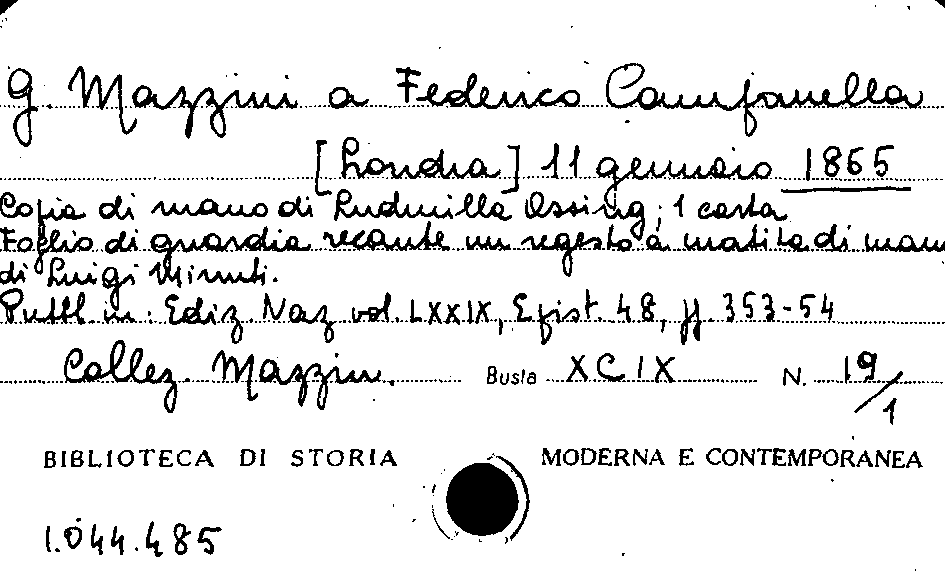 G. Mazzini a Federico Campanella
[Londra] 11 gennaio 1865
Copia di mano di Ludmilla Assing; 1 carta
Foglio di guardia recante un regesto a matita di mano
di Luigi Minuti.
Pubbl. in: Ediz. Naz. vol. LXXIX, Epist. 48, pp. 353-54
Collez. Mazzin. Busta XCIX N. 19/1
BIBLIOTECA DI STORIA MODERNA E CONTEMPORANEA
1.044.485